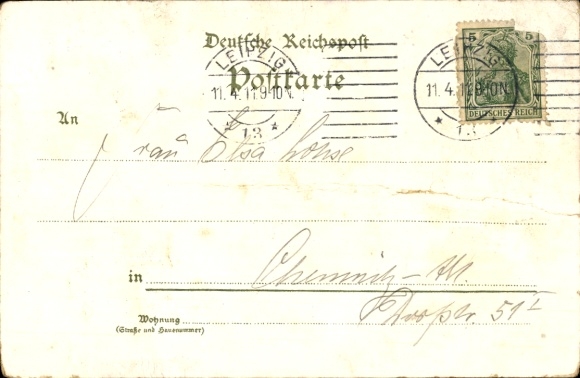 Deutsche Reichspost
Postkarte
LEIPZIG
11.4.11.9-10N.
* 13 *
LEIPZIG
11.4.11.9-10N.
* 13
5 5
DEUTSCHES REICH
An
Frau Elsa Lohse
in Chemnitz-Alt
51 I
Wohnung
(Straße und Hausnummer)